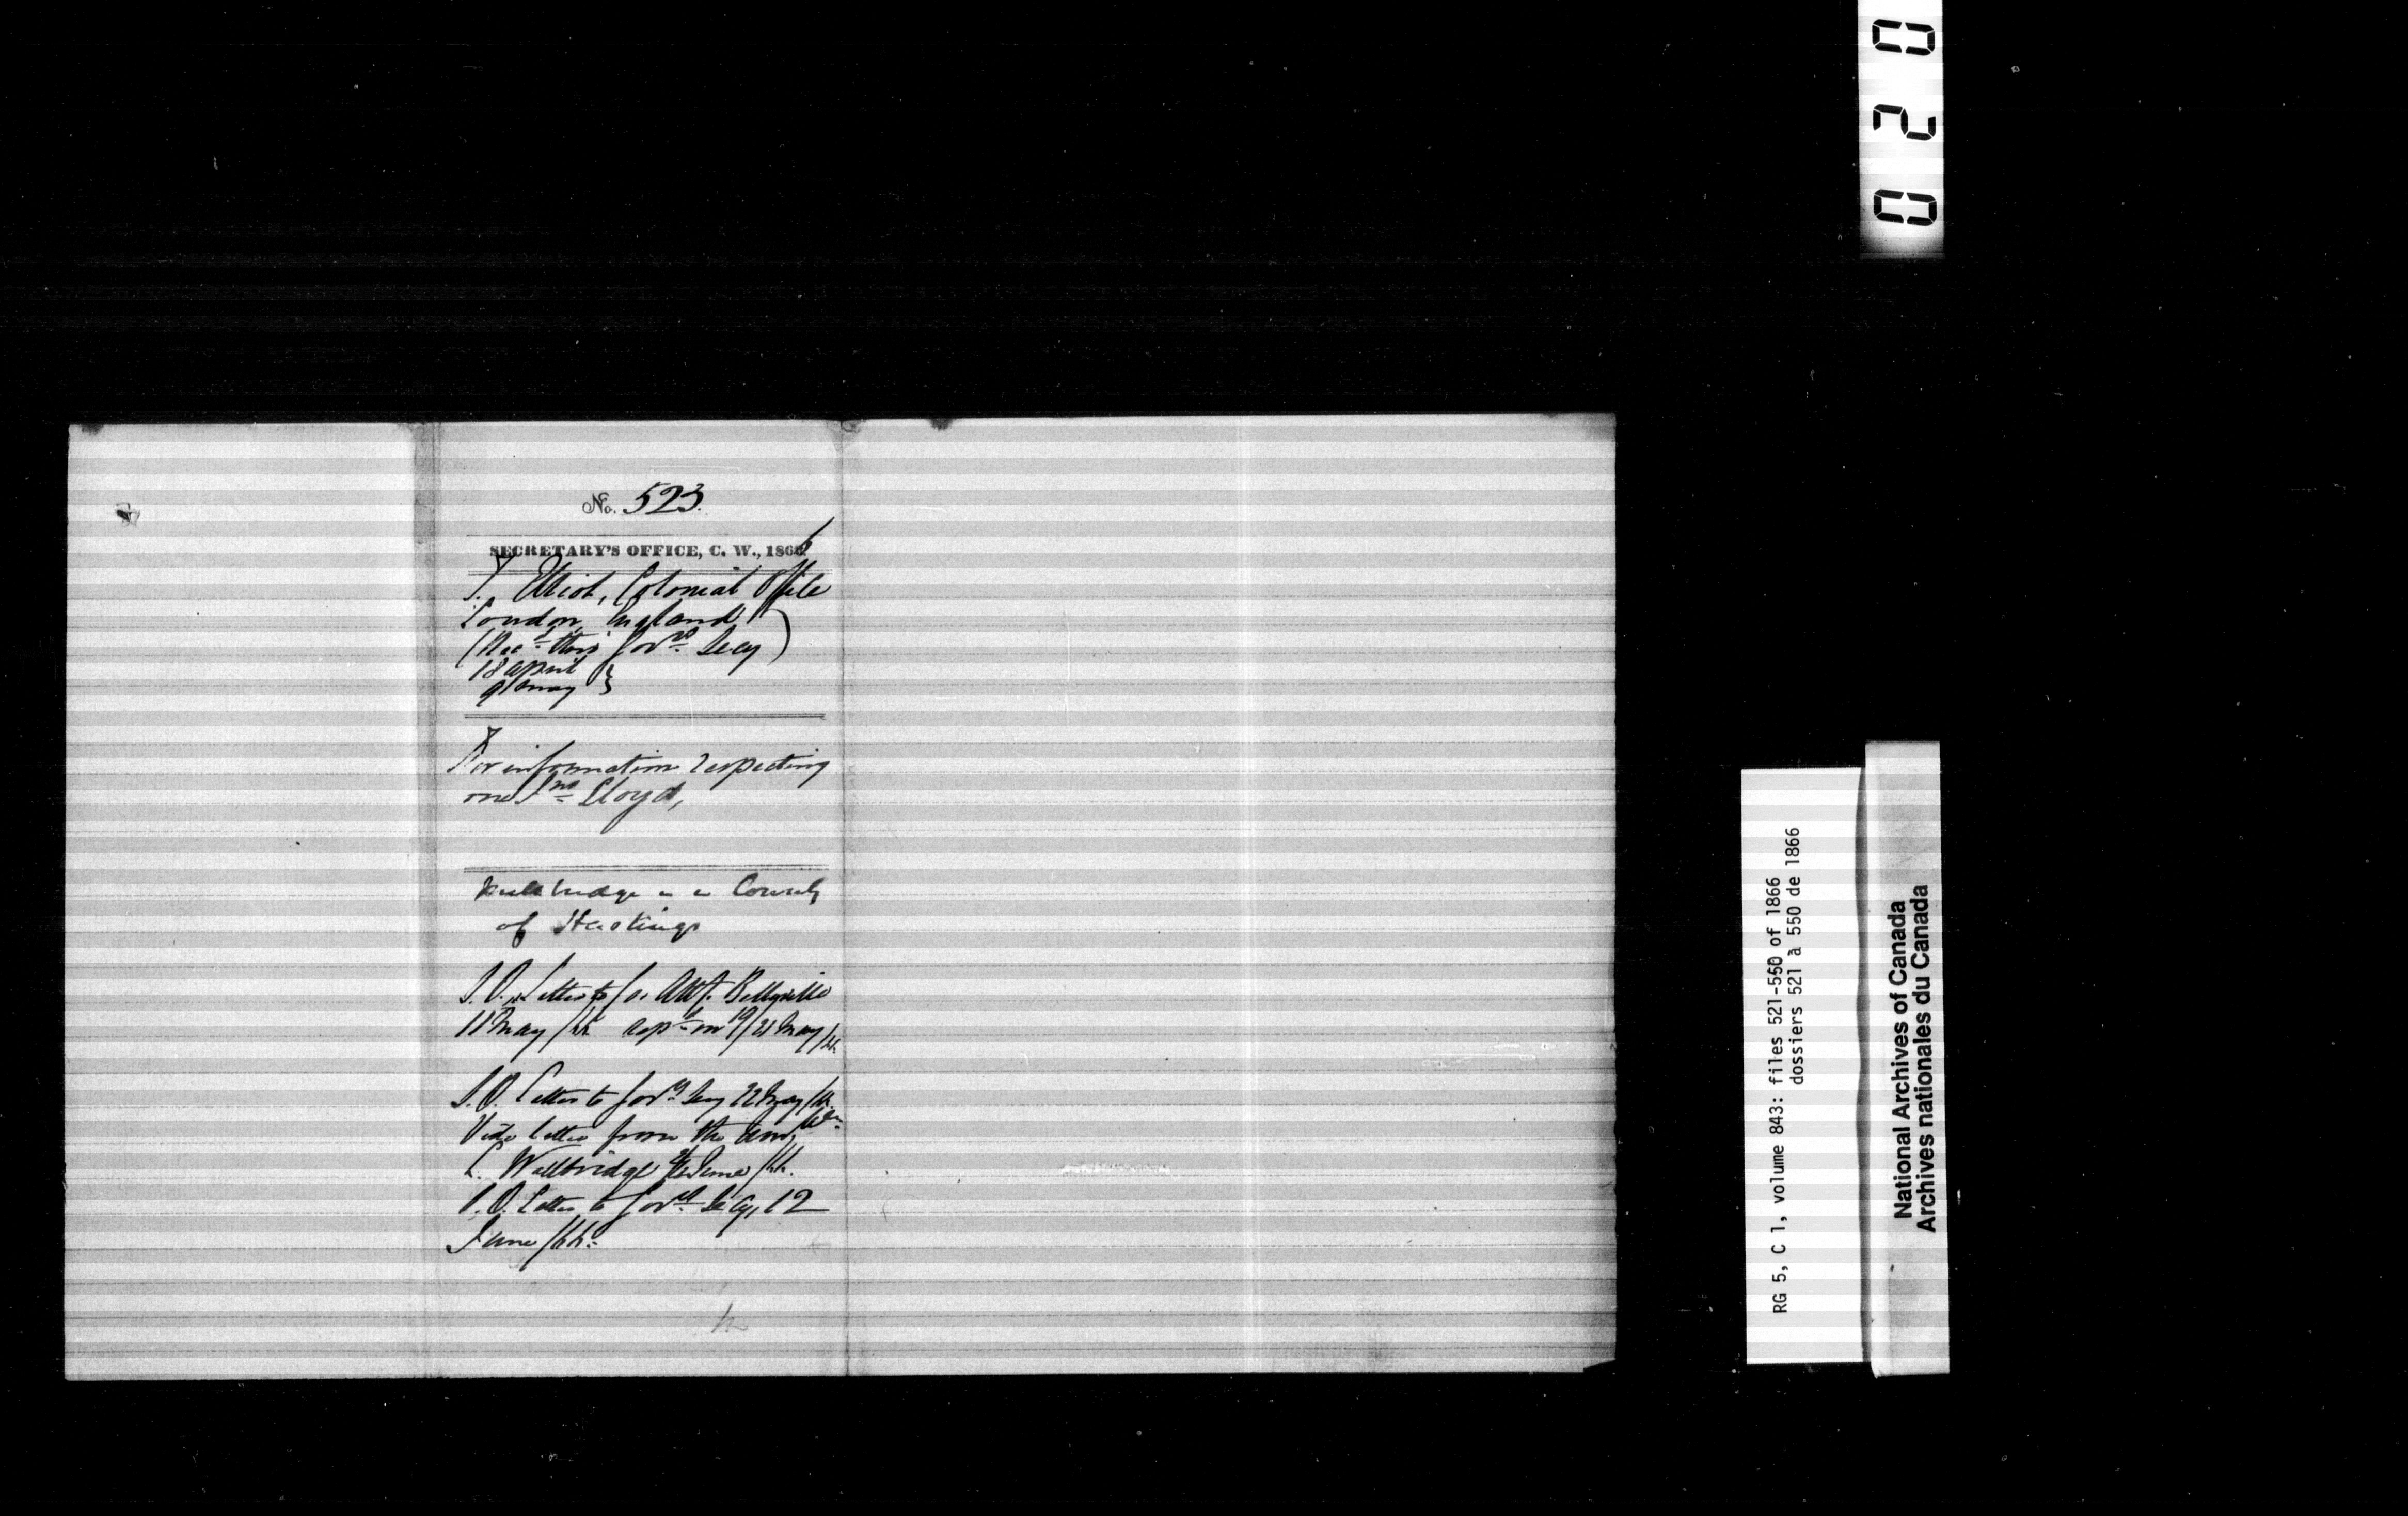 No. 523.
SECRETARY'S OFFICE, C. W., 1866
T. Elliot, Colonial Office
London, England
(Recd thro Govr Secy)
18 April
9 May
For information respecting
one Jno Lloyd,
County
of Hastings
S.O. Letter to Co. Atty. Belleville
11 May /66 repd on 19/21 May /66
S.O. Letter to Govr Secy 22 May /66
Vide letter from the
L. Wallbridge June /66.
S.O. Letter to Govr Secy, 12
June /66.
020
RG 5, C 1, volume 843: files 521-550 of 1866
dossiers 521 à 550 de 1866
National Archives of Canada
Archives nationales du Canada